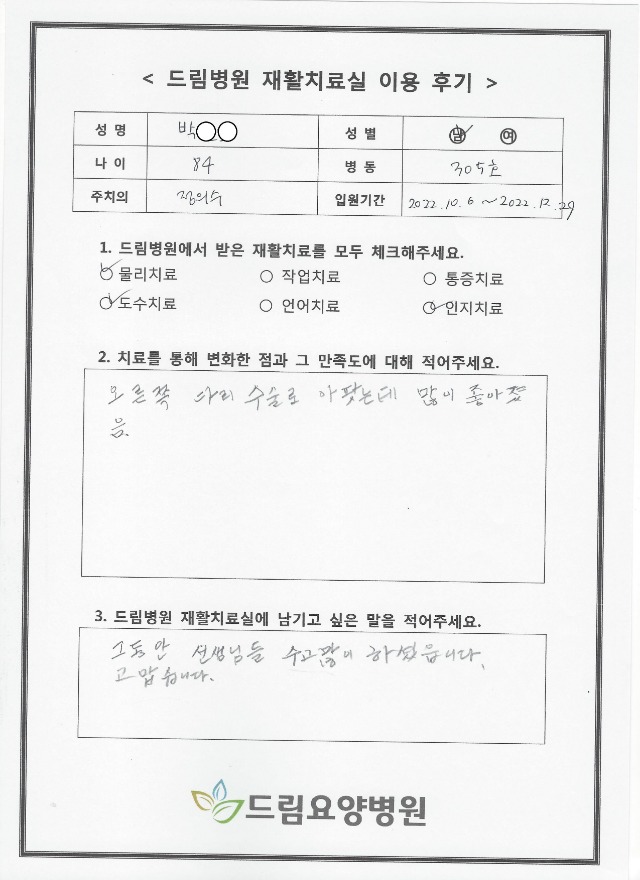 < 드림병원 재활치료실 이용 후기 >
성 명 박○○ 성 별 남 여
나 이 84 병 동 305호
주치의 정의수 입원기간 2022.10.6 ~ 2022.12.29
1. 드림병원에서 받은 재활치료를 모두 체크해주세요.
물리치료 ○ 작업치료 ○ 통증치료
도수치료 ○ 언어치료 인지치료
2. 치료를 통해 변화한 점과 그 만족도에 대해 적어주세요.
오른쪽 다리 수술로 아팟는데 많이 좋아졌
음.
3. 드림병원 재활치료실에 남기고 싶은 말을 적어주세요.
그동안 선생님들 수고많이 하셨읍니다.
고맙습니다.
드림요양병원